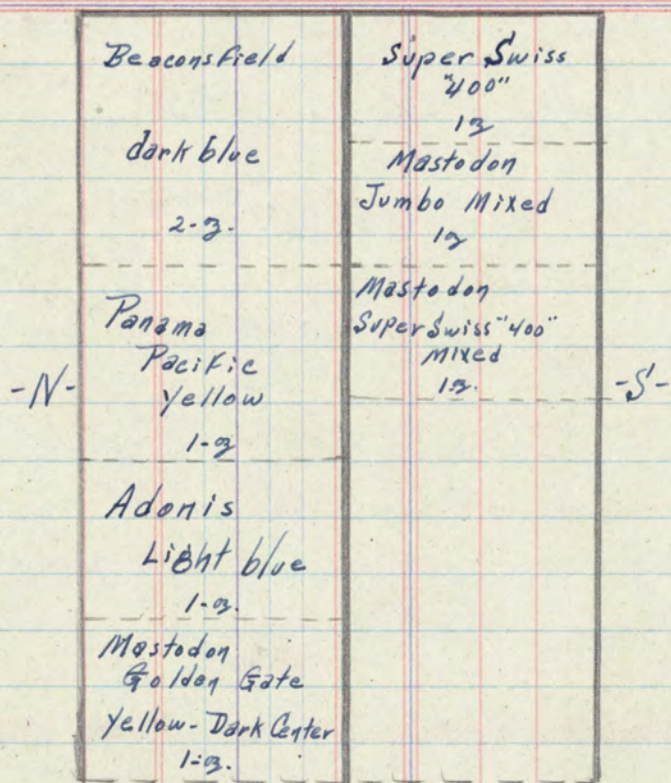 Beaconsfield
dark blue
2-oz.
Panama
Pacific
Yellow
1-oz
Adonis
Light blue
1-oz.
Mastodon
Golden Gate
Yellow-Dark Center
1-oz.
Super Swiss
"400"
1oz
Mastodon
Jumbo Mixed
1oz
Mastodon
Super Swiss "400"
Mixed
1-oz.
-N-
-S-